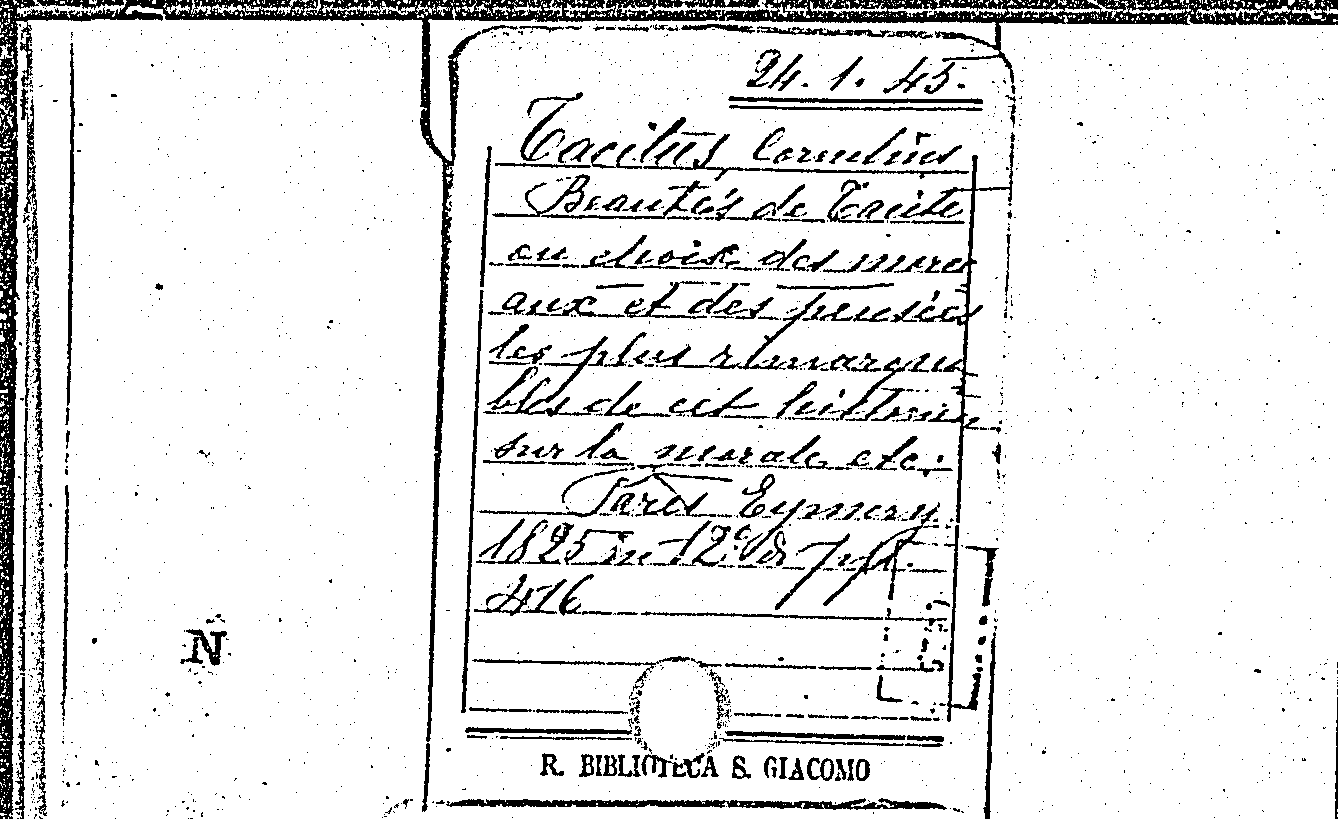 24. 1. 45.
Tacitus, Cornelius
Beautés de Tacite
ou choix des morce
aux et des pensées
les plus remarqua
bles de cet historien
sur la morale etc.
Paris Eymery
1825 in 12º di pp.
416
N
R. BIBLIOTECA S. GIACOMO